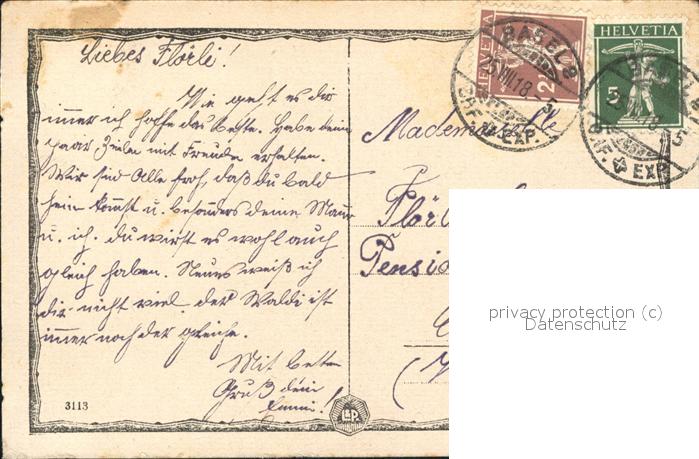 Liebes Flörli!
Wie geht es dir
immer ich hoffe das beste. Habe deine
paar Zeilen mit Freuden erhalten.
Wir sind Alle froh, daß du bald
heim kommst u. besonders deine Mama
u. ich. du wirst es wohl auch
gleich haben. Neues weiß ich
dir nicht viel. der Waldi ist
immer noch der gleiche.
Mit besten
Gruß dein
Emmi!
3113
L&P
HELVETIA
2½
BASEL 8
25.VIII.18.-5
BRF. EXP.
HELVETIA
5
BASEL
BRF. EXP.
Mademoiselle
Flör
Pensio
privacy protection (c)
Datenschutz